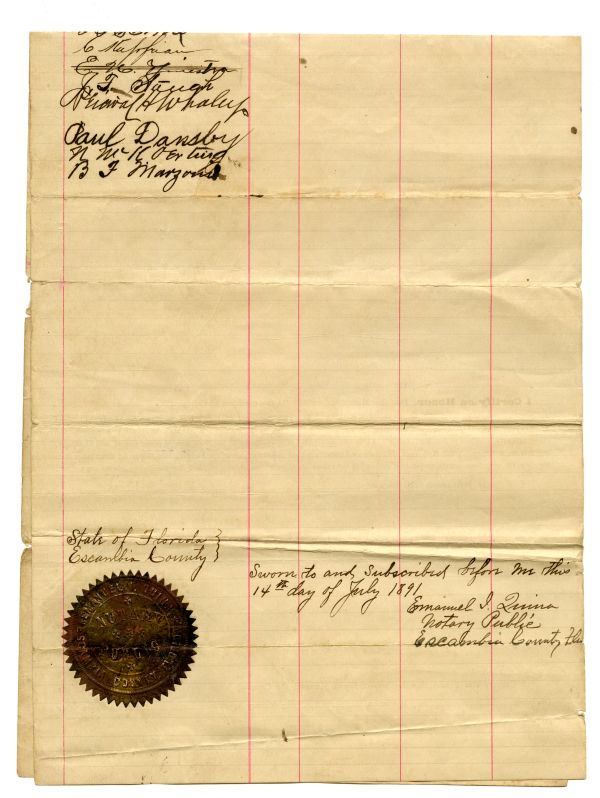 E. H.
J. F.
H Whaley
Paul Dansby
N Mc K
B F Marzoni
State of Florida }
Escambia County }
Sworn to and Subscribed before me this
14th day of July 1891
Emanuel I. Quina
Notary Public
Escambia County Fla